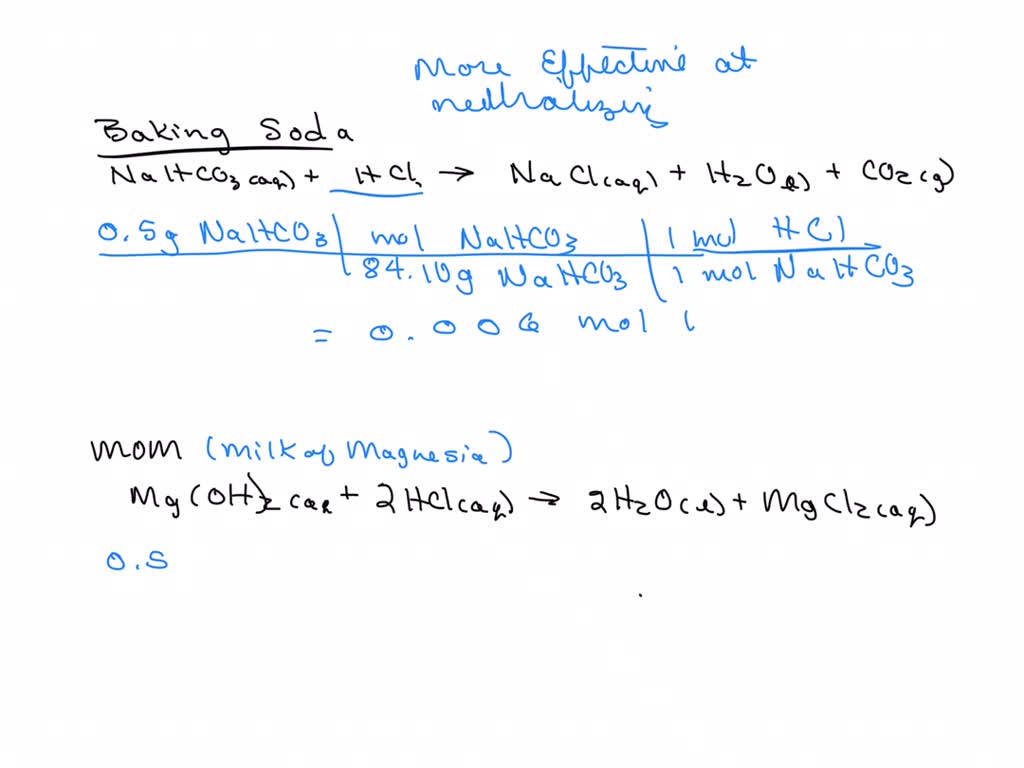 More Effective at
neutralizing
Baking Soda
NaHCO3(aq) + HCl, → NaCl(aq) + H2O(l) + CO2(g)
0.5g NaHCO3 | mol NaHCO3 | 1 mol HCl
84.10g NaHCO3 | 1 mol NaHCO3
= 0.006 mol (
MOM (Milk of Magnesia)
Mg(OH)2(aq + 2HCl(aq) → 2H2O(l) + MgCl2(aq)
0.5